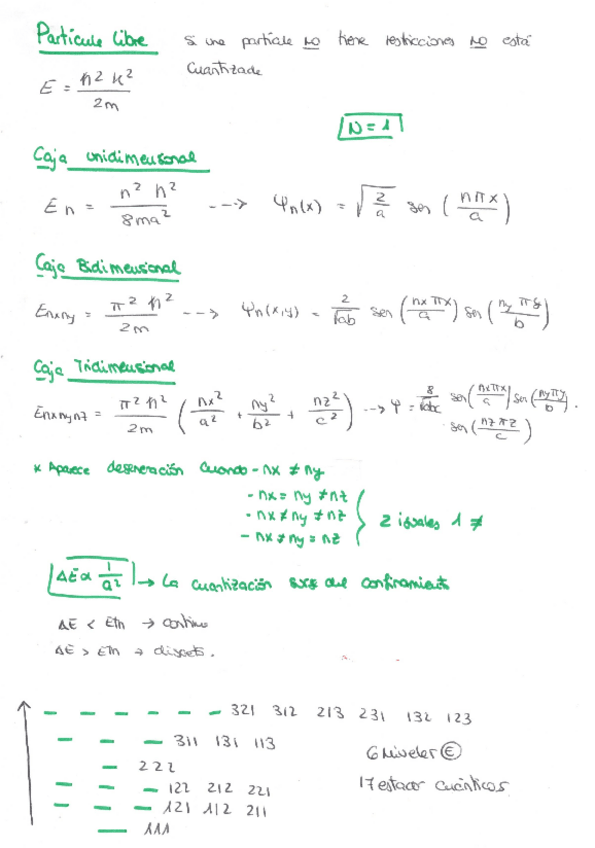 Partícula Libre Si una partícula NO tiene restricciones NO está
cuantizada
E = ħ² k² / 2m
N = 1
Caja unidimensional
En = n² h² / 8ma² ---> Ψn(x) = √(2/a) sen (nπx / a)
Caja Bidimensional
Enxny = π² ħ² / 2m --> Ψn(x,y) = 2/√ab sen (nxπx / a) sen (ny π y / b)
Caja Tridimensional
Enxnynz = π² ħ² / 2m (nx²/a² + ny²/b² + nz²/c²) --> Ψ = 8/√abc sen (nxπx / a) sen (nyπy / b) .
sen (nz πz / c)
* Aparece degeneración cuando - nx ≠ ny
- nx = ny ≠ nz
- nx ≠ ny ≠ nz } 2 iguales 1 ≠
- nx ≠ ny = nz
ΔE ∝ 1/a² → La cuantización del confinamiento
ΔE < Eth → continuo
ΔE > Eth → discreto.
321 312 213 231 132 123
311 131 113
222
122 212 221
121 112 211
111
6 Niveles E
17 estados cuánticos